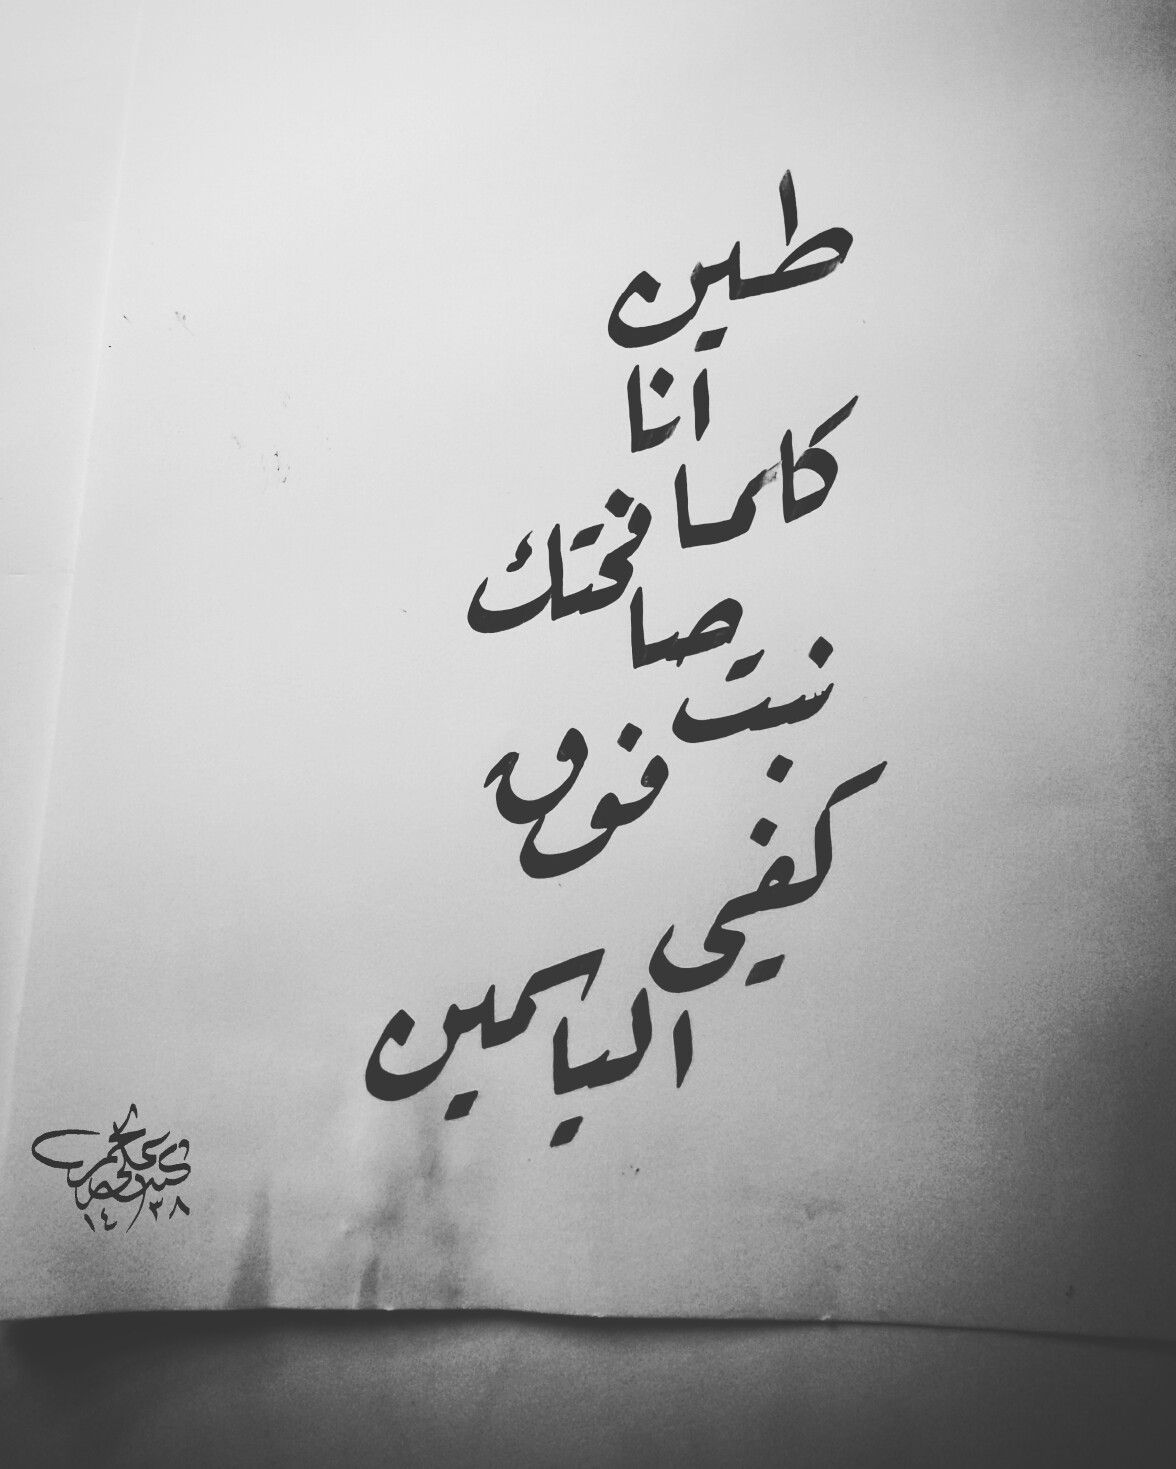 طين
انا
كلما
صافحتك
نبت
فوق
كفي
الياسمين
١٤٣٨